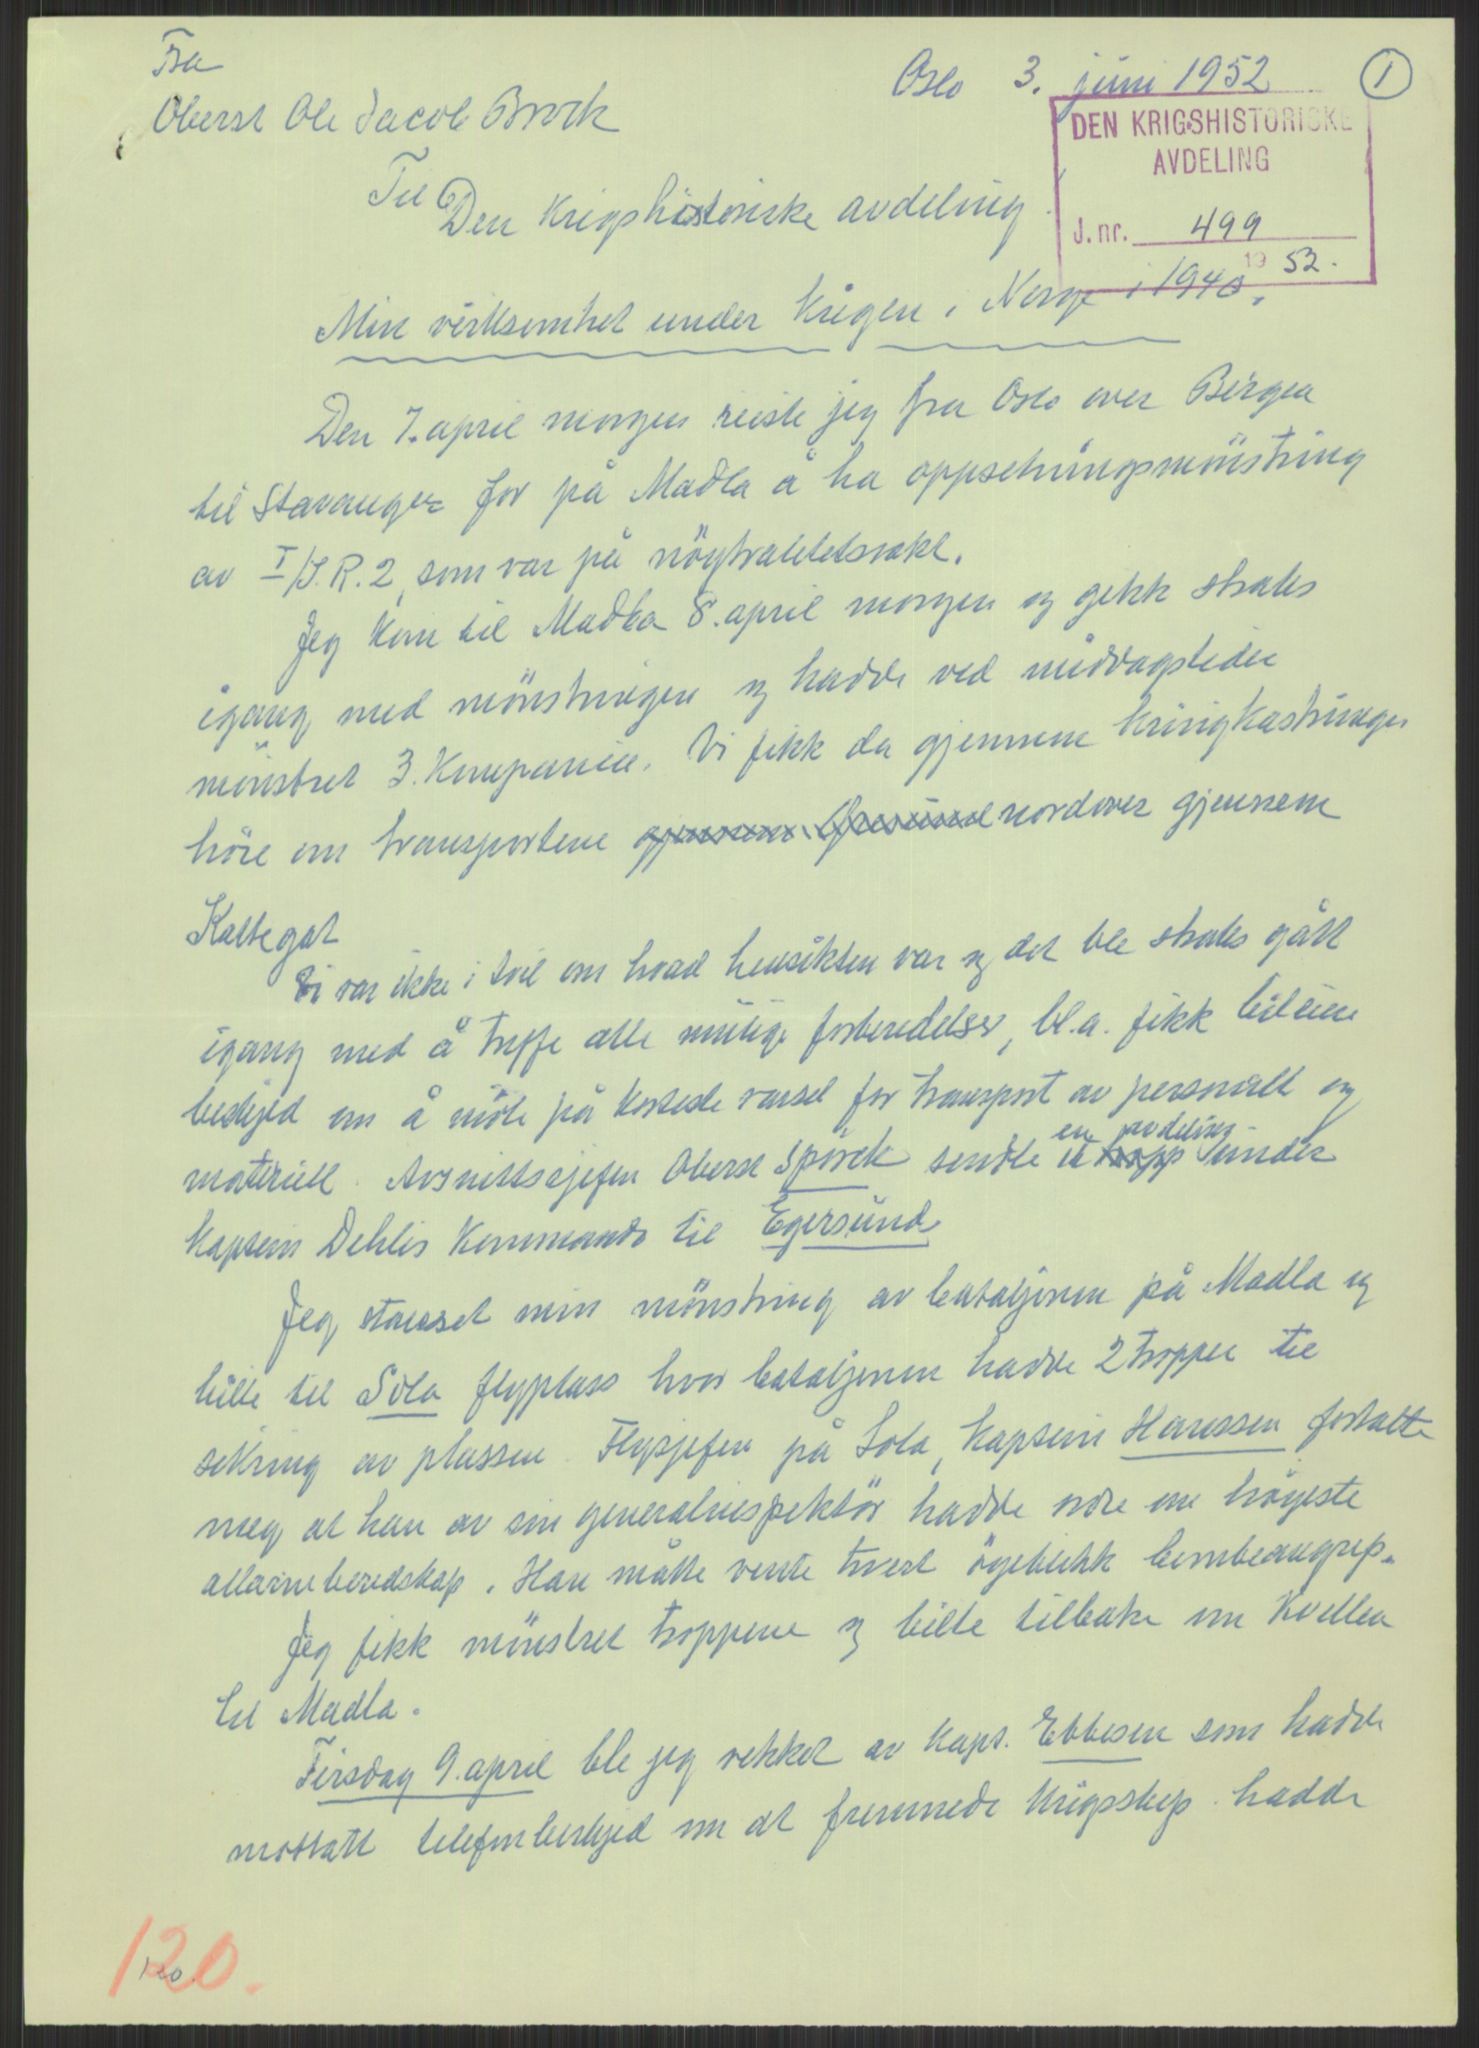 Fra
Oslo 3. juni 1952
1
Oberst Ole Jacob Broch
DEN KRIGSHISTORISKE
AVDELING
J. nr. 499
19 52.
Til
Den Krigshistoriske avdeling.
Min virksomhet under krigen i Norge i 1940.
Den 7. april morgen reiste jeg fra Oslo over Bergen
til Stavanger for på Madla å ha oppsetningsmönstring
av I/I.R. 2, som var på nöytralitetsvakt.
Jeg kom til Madla 8. april morgen og gikk straks
igang med mönstringen og hadde ved middagstider
mönstret 3. Kompanie. Vi fikk da gjennem Kringkastningen
höre om transportene nordover gjennem
Kattegat
Vi var ikke i tvil om hvad hensikten var og det ble straks gått
igang med å treffe alle mulige forberedelser, bl.a. fikk bileiere
beskjed om å möte på korteste varsel for transport av personell og
en avdeling
materiell. Avsnittssjefen Oberst Spörck sendte et tropp under
Kaptein Dehlis Kommando til Egersund
Jeg stanset min mönstring av bataljonen på Madla og
bilte til Sola flyplass hvor bataljonen hadde 2 tropper til
sikring av plassen. Flysjefen på Sola, Kaptein Hanssen fortalte
meg at han av sin generalinspektör hadde ordre om höyeste
allarmberedskap. Han måtte vente hvert öyeblikk bombeangrep.
Jeg fikk mönstret troppene og bilte tilbake om kvelden
til Madla.
Tirsdag 9. april ble jeg vekket av Kapt. Ebbesen som hadde
mottatt telefonbeskjed om at fremmede krigsskip hadde
120.
120.